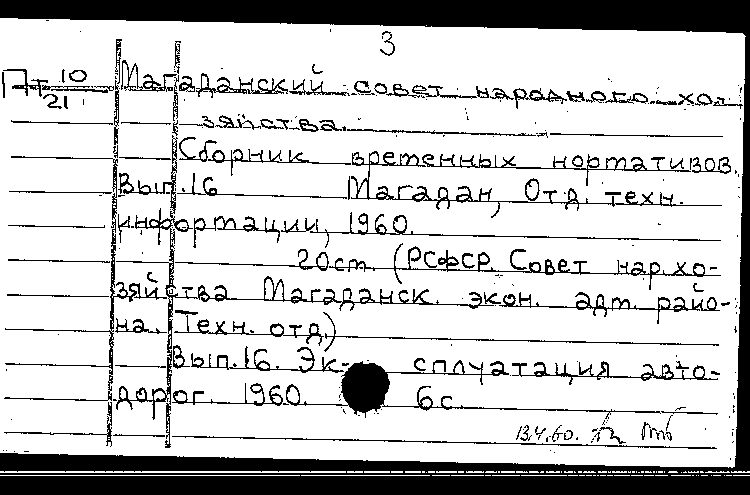 3
Пт 10/21 Магаданский совет народного хо-
зяйства.
Сборник временных нормативов.
Вып.16 Магадан, Отд. техн.
информации, 1960.
20см. (РСФСР. Совет нар.хо-
зяйства Магаданск. экон. адм. райо-
на. Техн. отд.)
Вып.16. Эксплуатация авто-
дорог. 1960. 6с.
13.4.60.